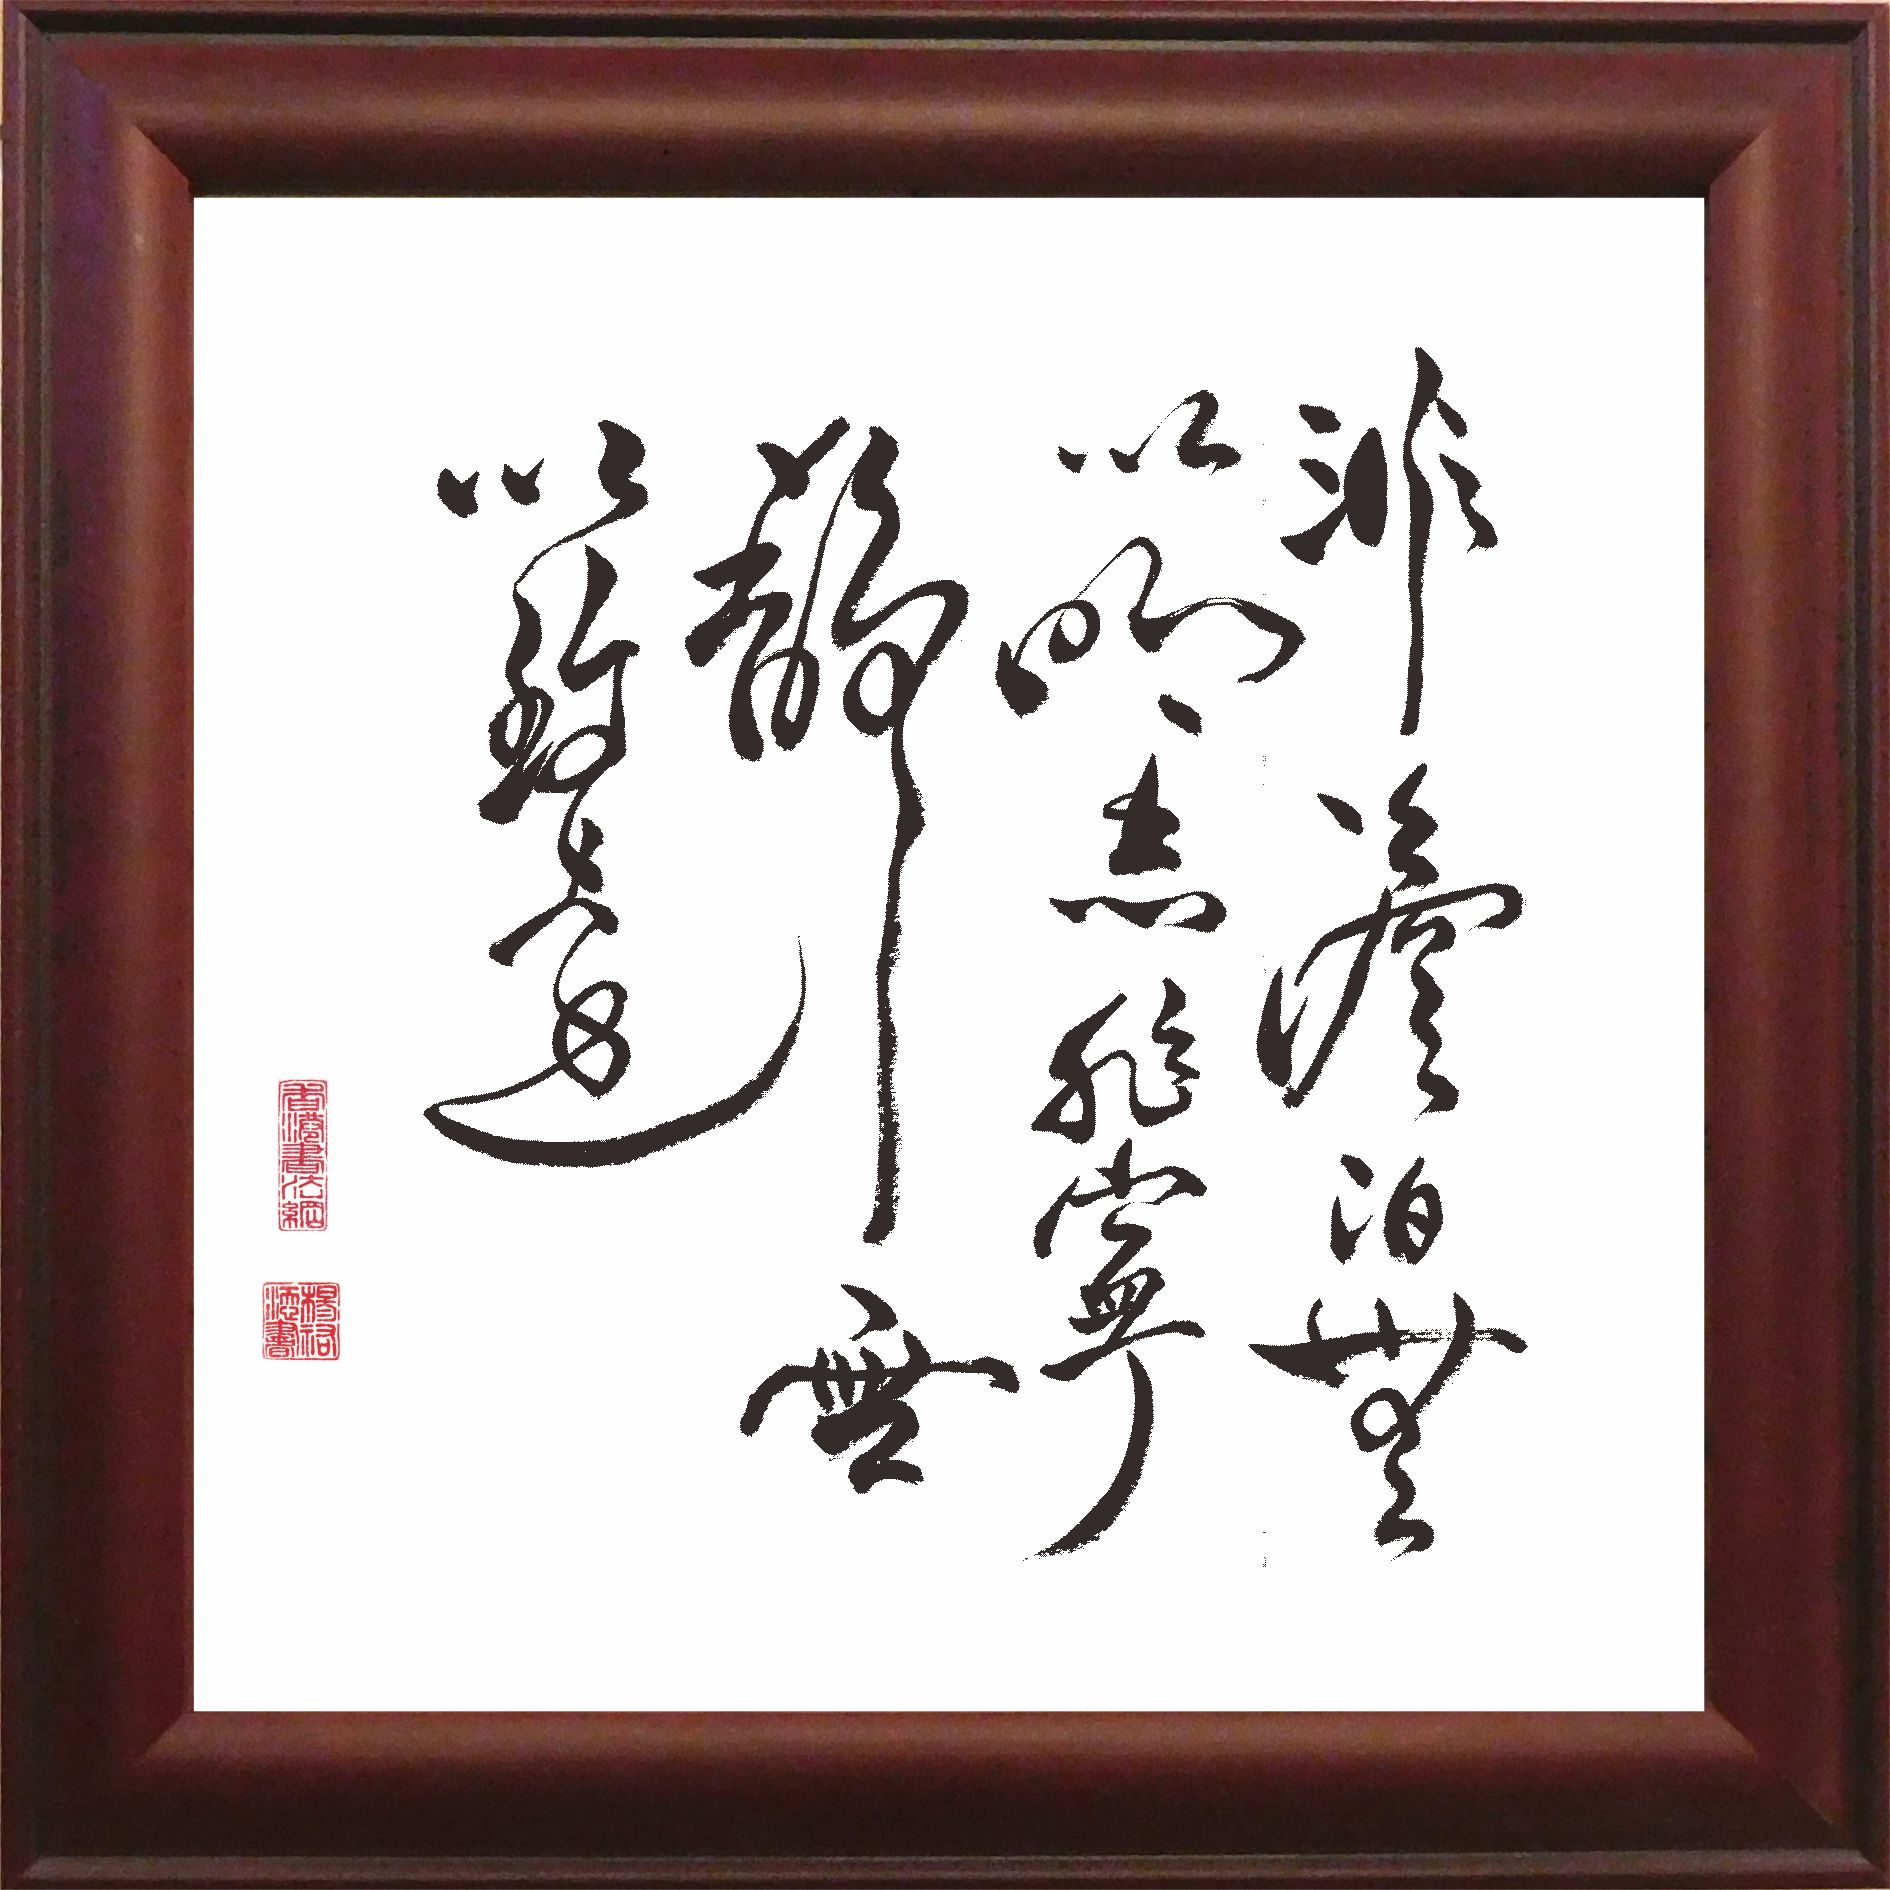 非澹泊無
以明志非寧
靜無
以致遠
香港書法網
楊沼
濡書